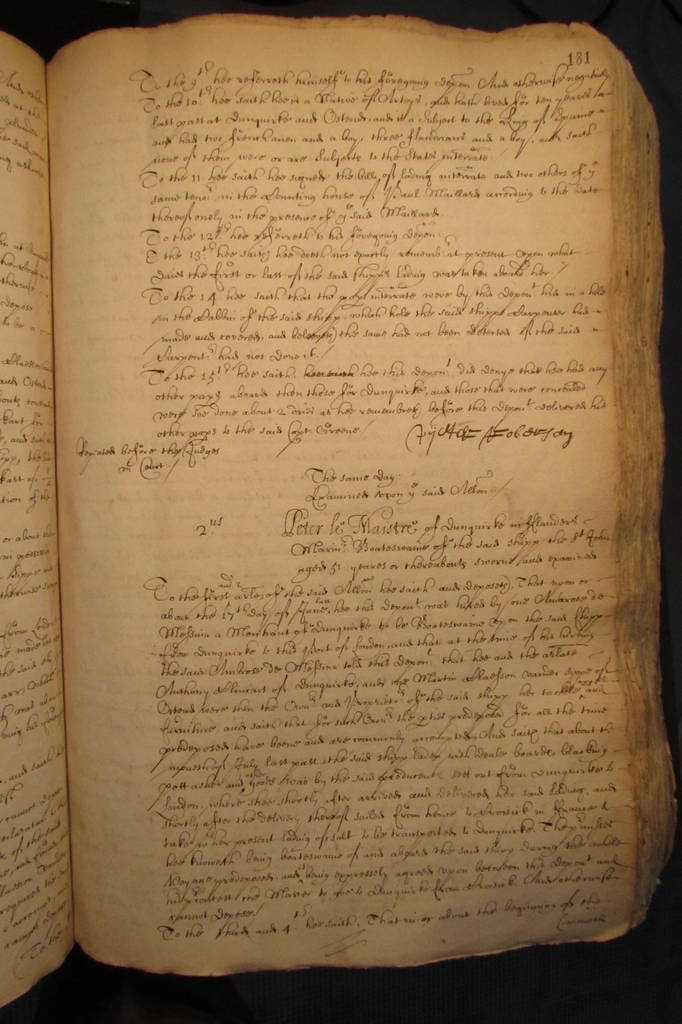 181
To the 9th hee referreth himselfe to his foregoing depon And otherwise negatively
To the 10th hee saith hee is a Native of Artoys, and hath lived for ten yeares
last past at Dunquirke and Ostend, and is a subject to the King of Spaine
and had two frenchmen and a boy, three flandrians and a boy, and saith
none of them were or are Subjects to the States interrate.
To the 11 hee saith hee signed the bills of lading interrate and two others of ye
same tenor in the Counting house of Paul Maillard according to the date
thereof onely in the presence of ye said Maillard.
To the 12th hee referreth to his foregoing depon.
To the 13th hee saith hee doth not exactly remember at present upon what
daies the first or last of the said shipps lading was taken aboard her.
To the 14 hee saith that the papers interrate were by this deponent hid in a hole
in the Cabbin of the said shipp, which hole the said shipps Carpenter had
made and covered, and the same had not been detected if the said
Carpenter had not done it.
To the 15th hee saith hee this deponent did denye that hee had any
other papers aboard then those for Dunquirke, and those that were concealed
were soe done about 2 daies as hee remembreth before this deponent delivered his
other papers to the said Capt. Greene
Repeated before the Judges
in Court.
The same day
Examined upon ye said Allon
2us
Peter le Maistre of Dunquirke in flanders
Marinr Boateswaine of the said shipp the St John
aged 51 yeares or thereabouts sworne and examined
To the first and 2 arles of the said Allon hee saith and deposeth That upon or
about the 17th day of June last hee this deponent was hired by one Ambrose de
Messina a Merchant of Dunquirke to be Boateswaine upon the said shipp
from Dunquirke to this Port of London, and that at the time of his hireing
the said Ambrose de Messina told this deponent that hee and the arlate
Anthony of Dunquirke, and one Martin Claessen vander of
Ostend were then the Owners and Proprietors of the said shipp her tackle and
furniture, and saith that for such Owners the predeposed for all the time
predeposed have beene and are commonly accompted, And saith that about the
moneth of July last past the said shipp laden with deale boards blacking
pott ashes and other goods was by the said producents sett out from Dunquirke to
London, where shee shortly after arrived and delivered her said lading, and
shortly after the delivery thereof sailed from hence to in France to
take in her present lading of salt to be transported to Dunquirke. The premisses
hee knoweth being boateswaine of and aboard the said shipp during the
voyage predeposed, and it being expressely agreed upon betweene this deponent and
his the Master to goe to Dunquirke from And otherwise
cannot depose.
To the third and 4th hee saith, That in or about the beginning of the